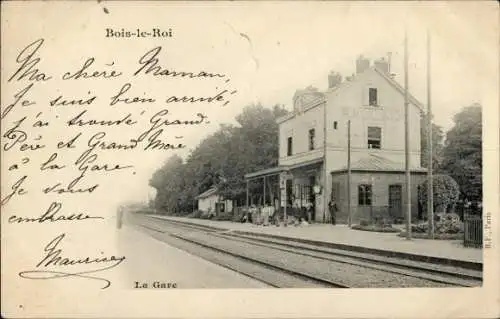 Bois-le-Roi
Ma chère Maman
Je suis bien arrivé
j'ai trouvé Grand
Père et Grand Mère
à la Gare
Je vous
embrasse
Maurice
La Gare
B.F., Paris